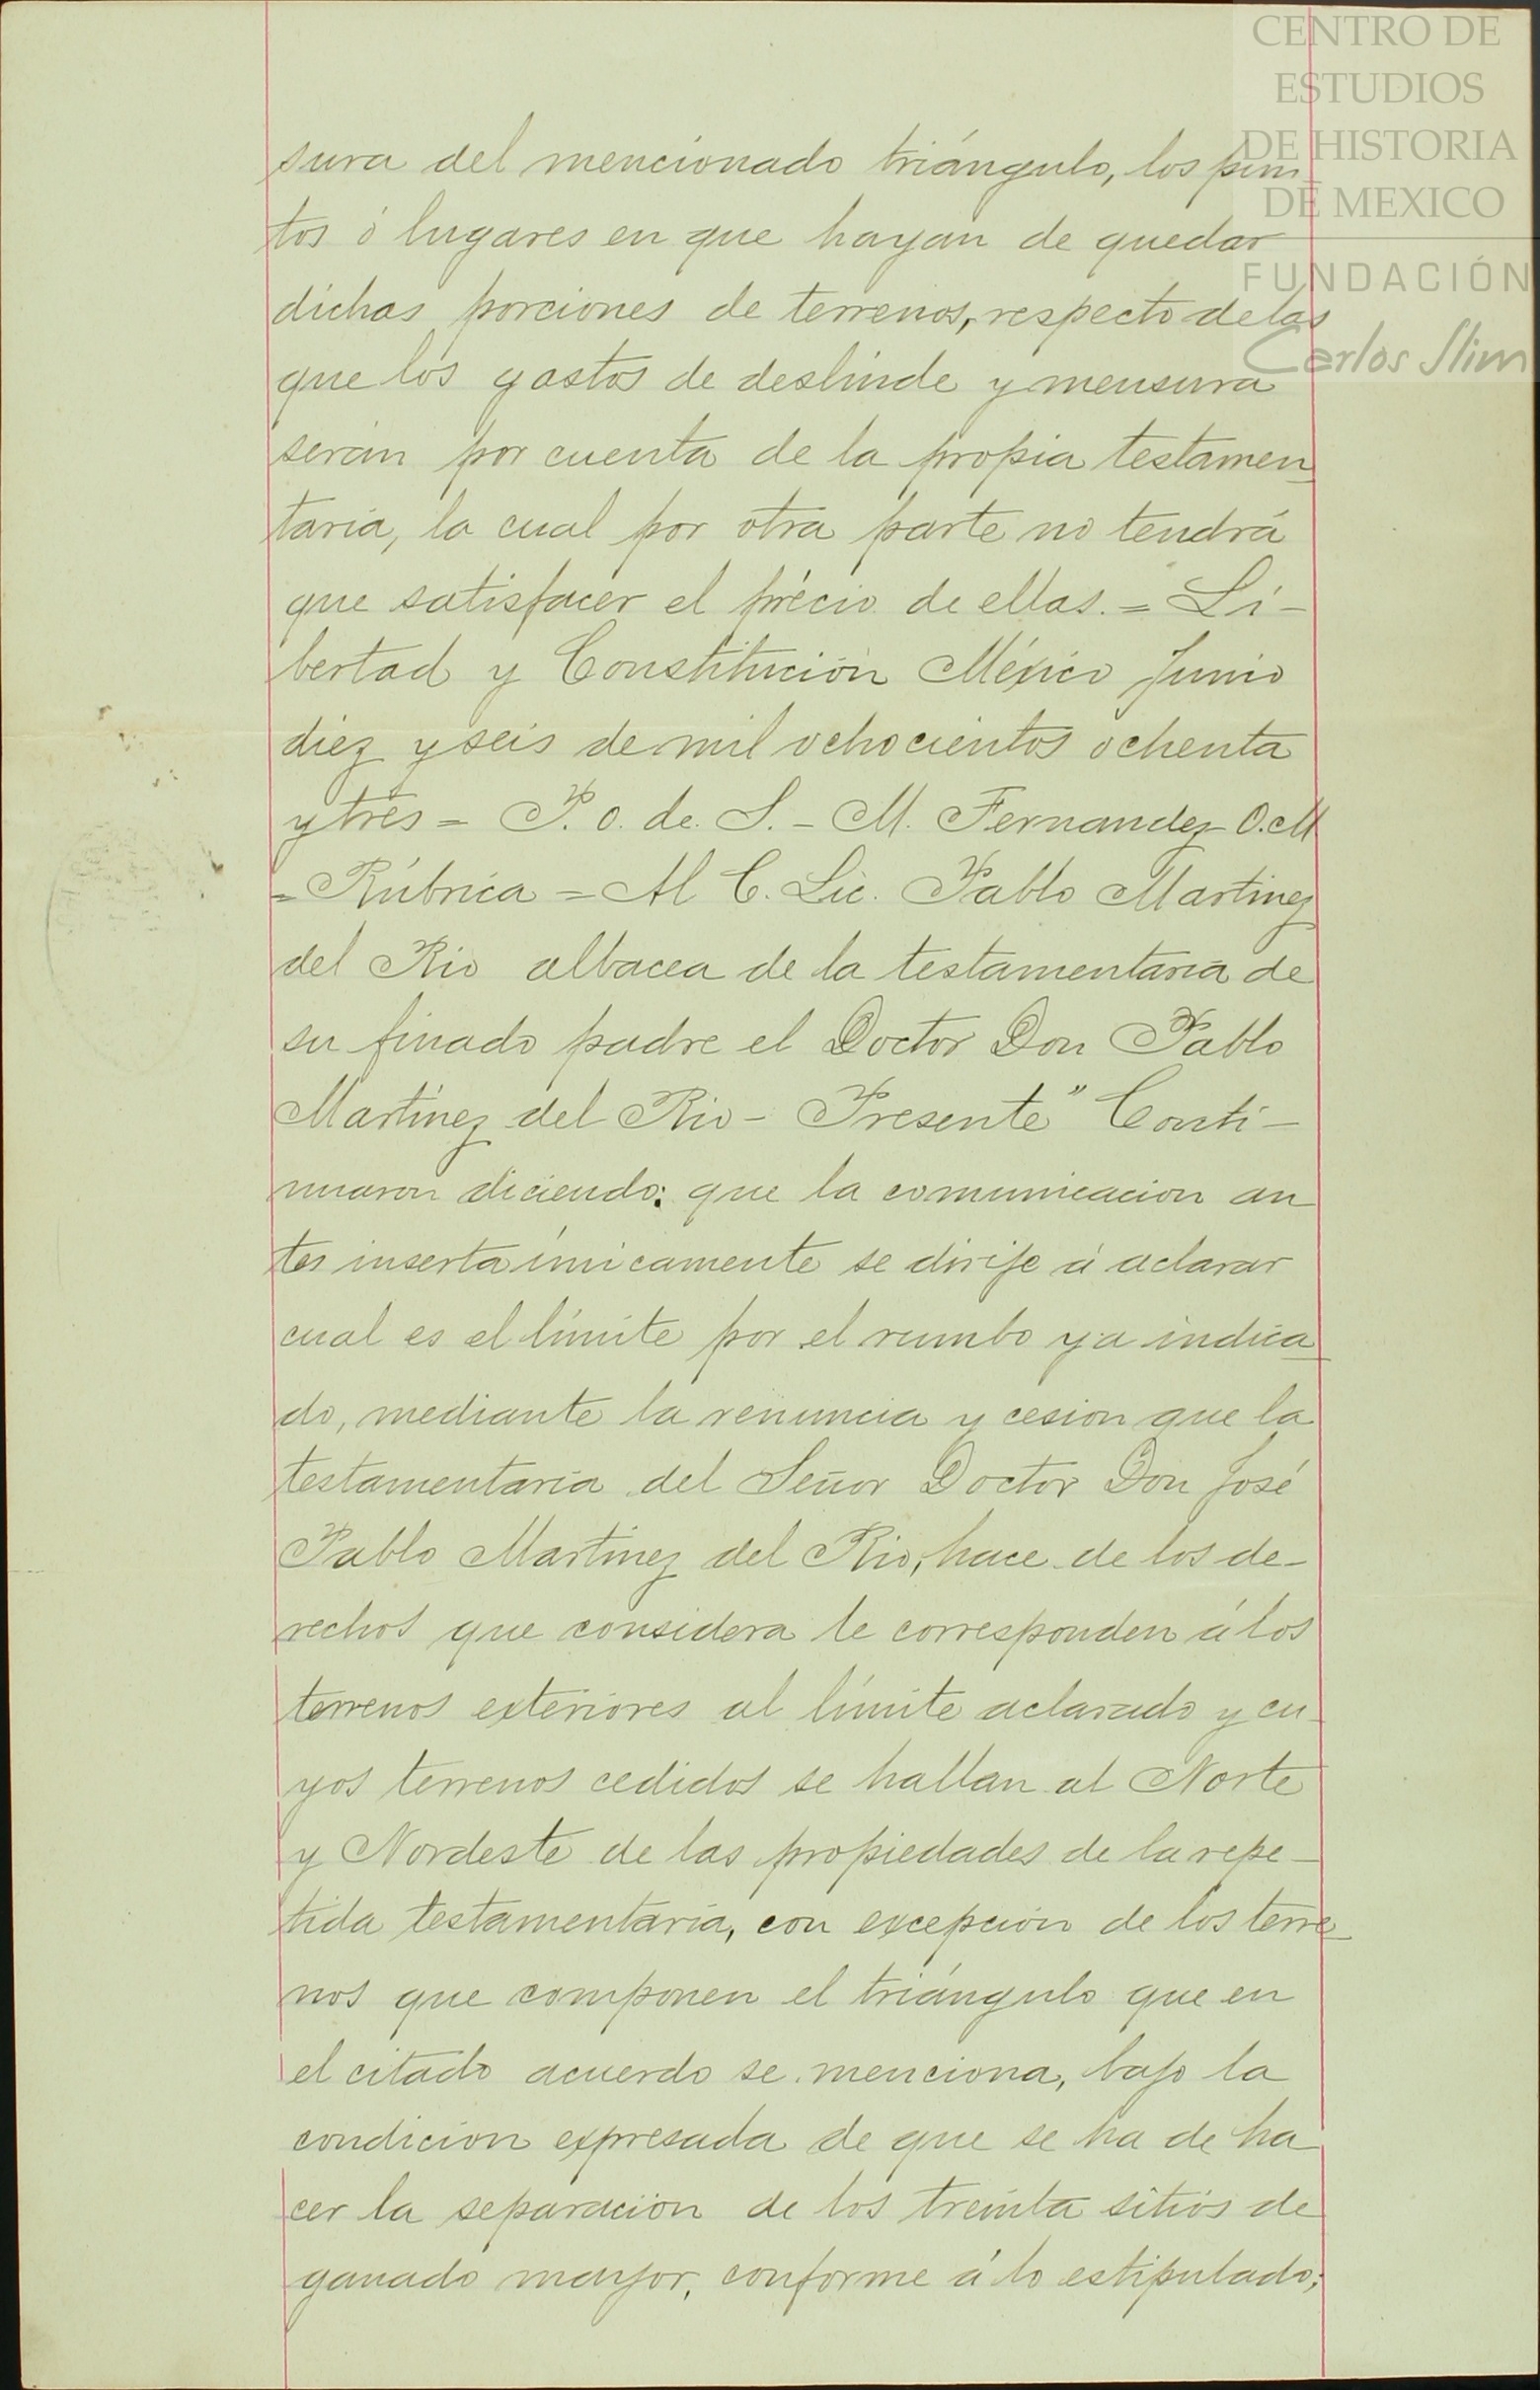 CENTRO DE
ESTUDIOS
DE HISTORIA
DE MEXICO
FUNDACIÓN
Carlos Slim
sura del mencionado triángulo, los pun
tos ó lugares en que hayan de quedar
dichas porciones de terrenos, respecto de las
que los gastos de deslinde y mensura
serán por cuenta de la propia testamen
taría, la cual por otra parte no tendrá
que satisfacer el précio de ellas. = Li-
bertad y Constitución México Junio
diez y seis de mil ochocientos ochenta
y tres = P. o. de. S. - M. Fernandez O. M
= Rúbrica = Al C. Lic. Pablo Martinez
del Rio albacea de la testamentaría de
su finado padre el Doctor Don Pablo
Martinez del Rio - Presente" Conti-
nuaron diciendo: que la comunicacion an
tes inserta únicamente se dirije á aclarar
cual es el límite por el rumbo ya indica
do, mediante la renuncia y cesion que la
testamentaría del Señor Doctor Don José
Pablo Martinez del Rio, hace de los de-
rechos que considera le corresponden á los
terrenos exteriores al límite aclarado y cu-
yos terrenos cedidos se hallan al Norte
y Nordeste de las propiedades de la repe-
tida testamentaría, con excepción de los terre
nos que componen el triángulo que en
el citado acuerdo se menciona, bajo la
condicion expresada de que se ha de ha
cer la separación de los treinta sitios de
ganado mayor, conforme á lo estipulado;